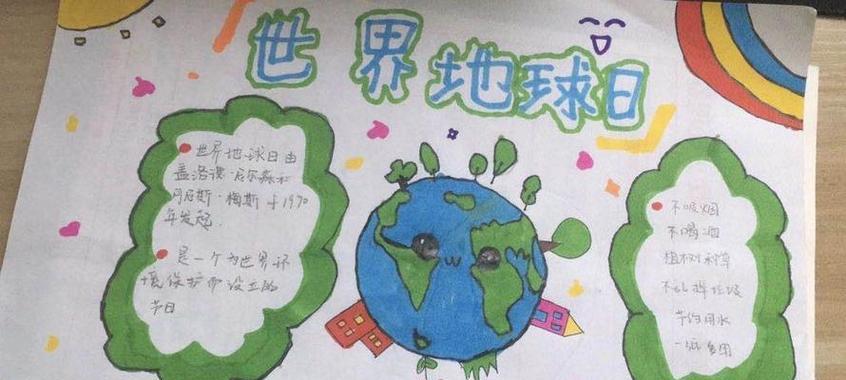 世界地球日
世界地球日由
盖洛德·尼尔森和
丹尼斯·梅斯于1970
年发起.
是一个为世界环
境保护而设立的
节日
不吸烟
不喝酒
植树种草
不乱掉垃圾
节约用水